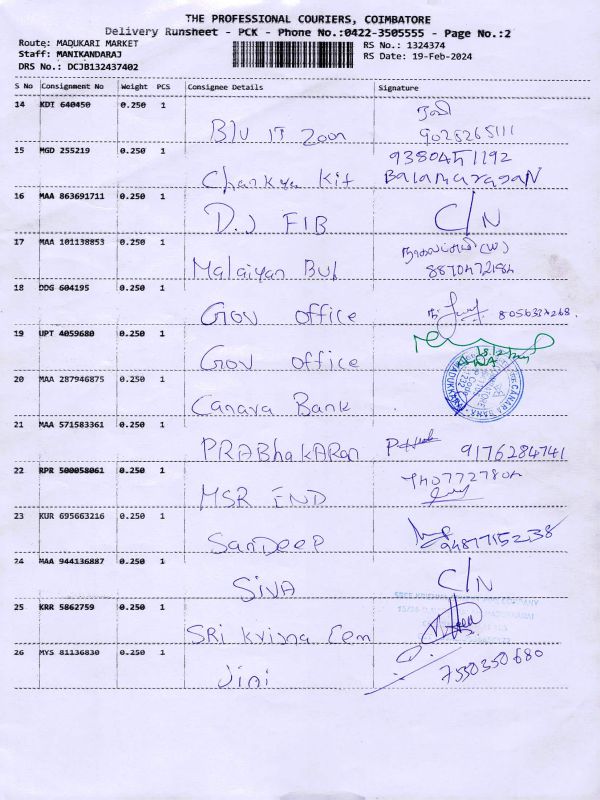 THE PROFESSIONAL COURIERS, COIMBATORE
Delivery Runsheet - PCK - Phone No.:0422-3505555 - Page No.:2
Route: MADUKARI MARKET
RS No.: 1324374
Staff: MANIKANDARAJ
RS Date: 19-Feb-2024
DRS No.: DCJB132437402
S No Consignment No Weight PCS Consignee Details Signature
14 KDI 640450 0.250 1
Blu IT Zoon 9025265111
15 MGD 255219 0.250 1 9380451192
Chankya Kit BalamurugaN
16 MAA 863691711 0.250 1
D.J FIB C/N
17 MAA 101138853 0.250 1
Malaiyan Bul
18 DDG 604195 0.250 1
Gov office
19 UPT 4059680 0.250 1
Gov office
20 MAA 287946875 0.250 1
Canara Bank
21 MAA 571583361 0.250 1
PRABhakARan 9176284741
22 RPR 500058061 0.250 1
MSR END
23 KUR 695663216 0.250 1
SanDeep
24 MAA 944136887 0.250 1
SiVA C/N
25 KRR 5862759 0.250 1
SRi Krisna Cem
26 MYS 81136830 0.250 1
Jini 7550350680